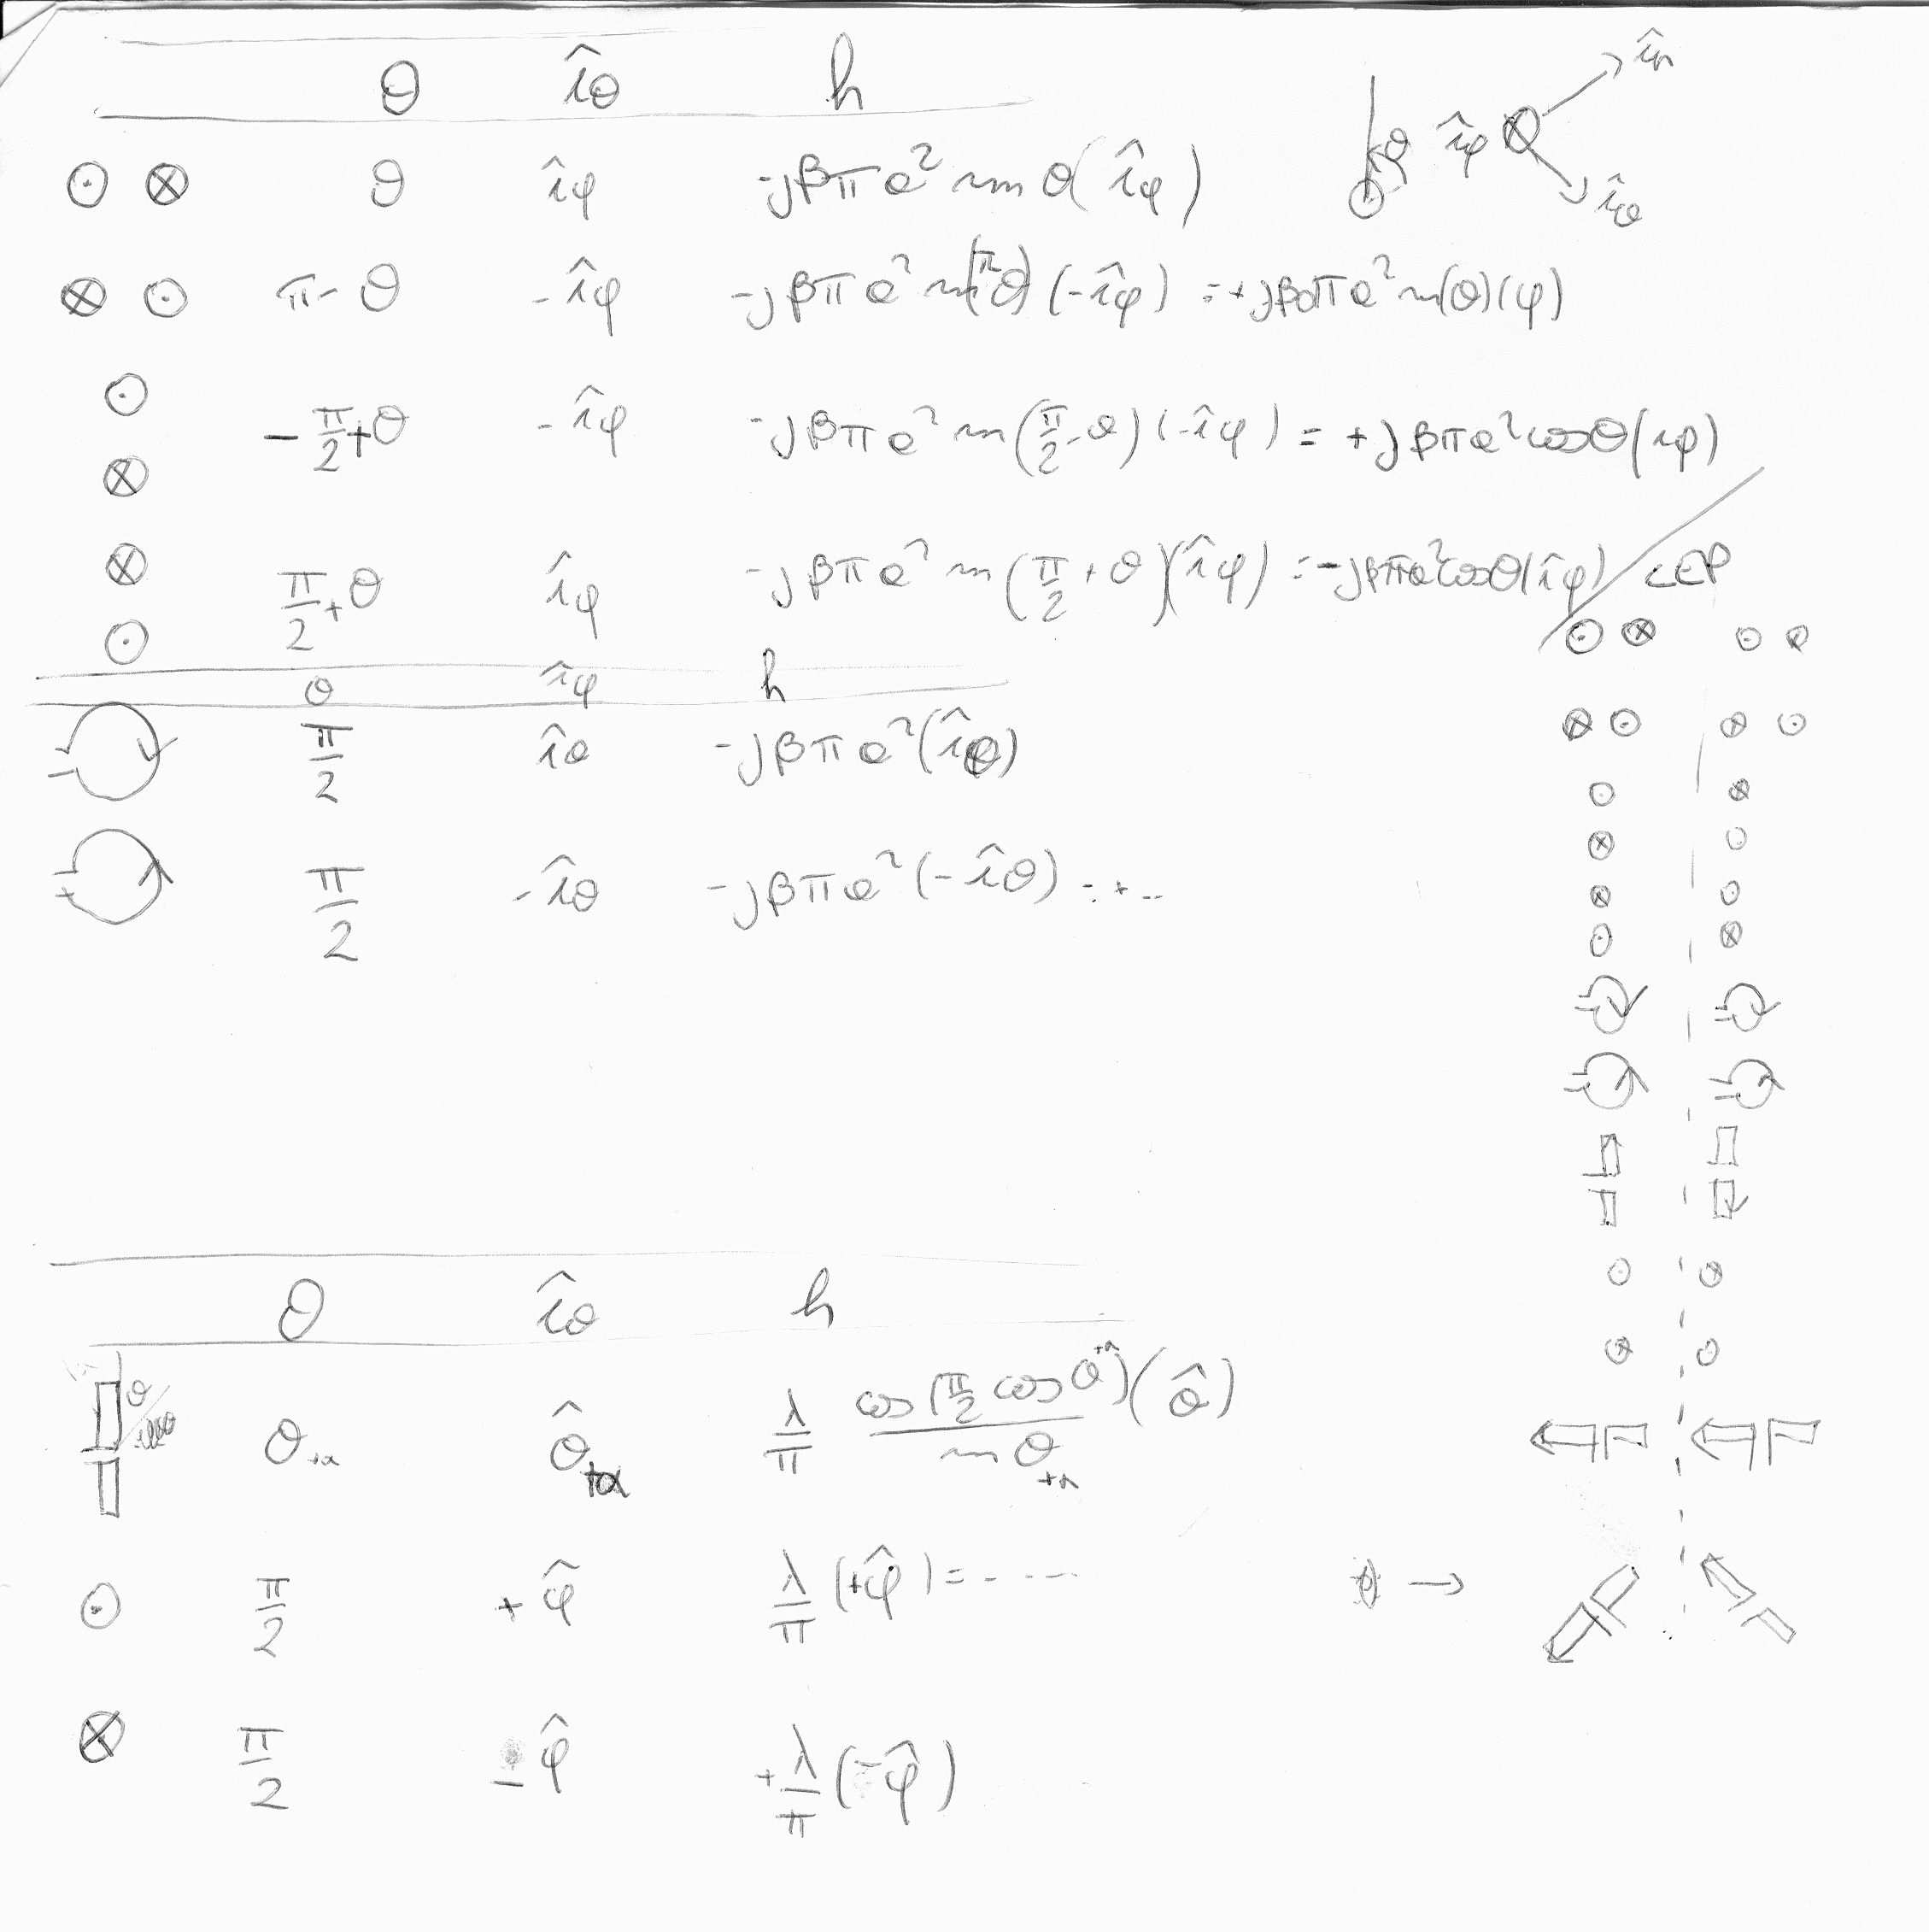 θ îθ h
îr
θ îφ
îθ
⊙ ⊗ θ îφ -jβπa² sin θ(îφ)
⊗ ⊙ π-θ -îφ -jβπa² sin(π-θ)(-îφ) = +jβπa² sin(θ)(φ)
⊙ ⊗ -π/2+θ -îφ -jβπa² sin(π/2-θ)(-îφ) = +jβπa² cosθ(iφ)
⊗ ⊙ π/2+θ îφ -jβπa² sin(π/2+θ)(îφ) = -jβπa² cosθ(îφ)
CEP
θ îφ h
π/2 îθ -jβπa²(îθ)
π/2 -îθ -jβπa²(-îθ) = + --
θ îθ h
θ
θ+α θ̂+α λ/π cos(π/2 cos θ+α)/sin θ+α (θ̂)
⊙ π/2 +φ̂ λ/π(+φ̂) = -----
⊗ π/2 -φ̂ +λ/π(-φ̂)